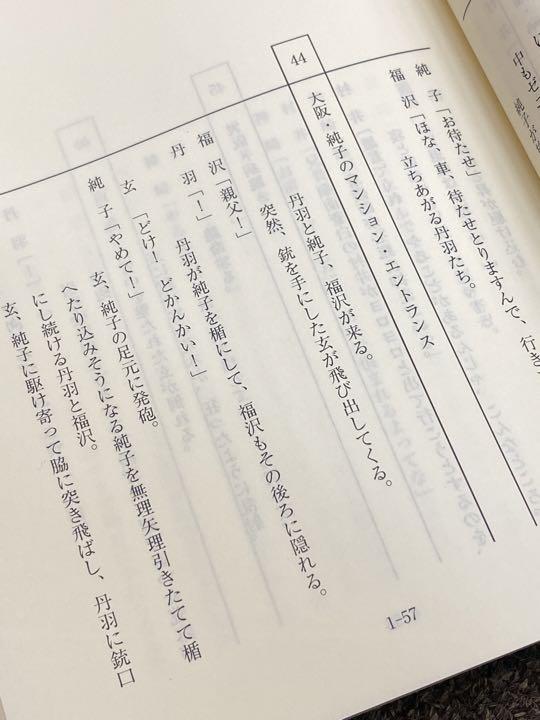 純子「お待たせ」
福沢「ほな、車、待たせとりますんで、行き
立ちあがる丹羽たち。
44
大阪・純子のマンション・エントランス
丹羽と純子、福沢が来る。
突然、銃を手にした玄が飛び出してくる。
福沢「親父！」
丹羽「！」
丹羽が純子を楯にして、福沢もその後ろに隠れる。
玄「どけ！ どかんかい！」
純子「やめて！」
玄、純子の足元に発砲。
へたり込みそうになる純子を無理矢理引きたてて楯
にし続ける丹羽と福沢。
玄、純子に駆け寄って脇に突き飛ばし、丹羽に銃口
1-57